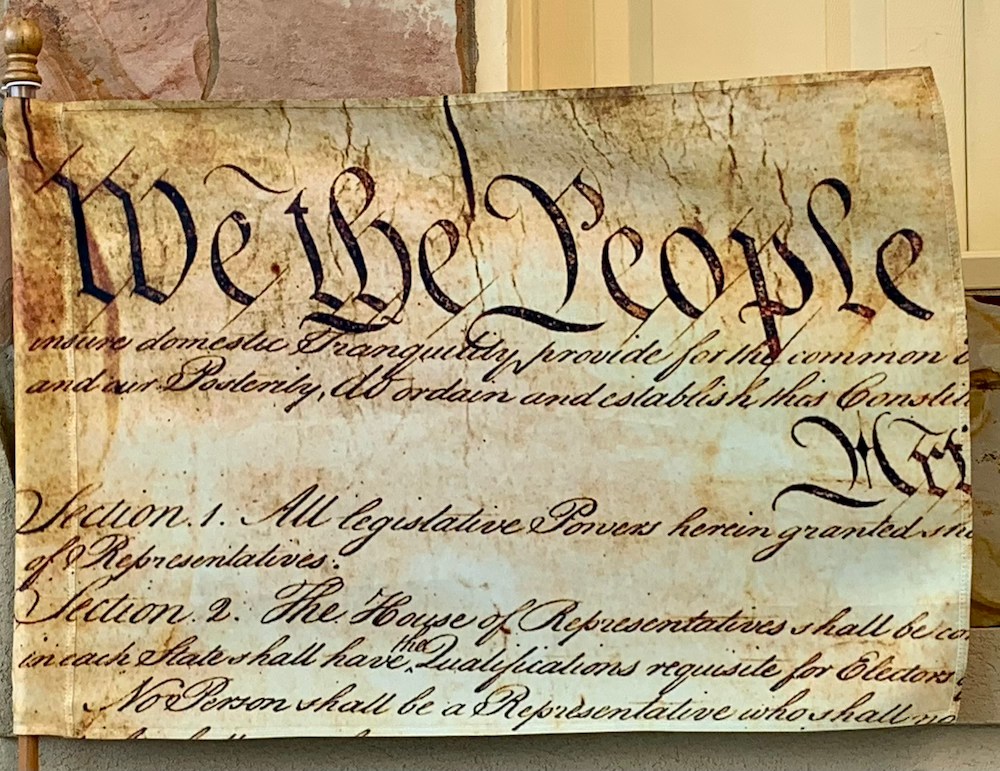 We the People
insure domestic Tranquility, provide for the common
and our Posterity, do ordain and establish this Constitu
Arti
Section. 1. All legislative Powers herein granted sha
of Representatives.
Section. 2. The House of Representatives shall be co
the
in each State shall have Qualifications requisite for Electors
No Person shall be a Representative who shall no